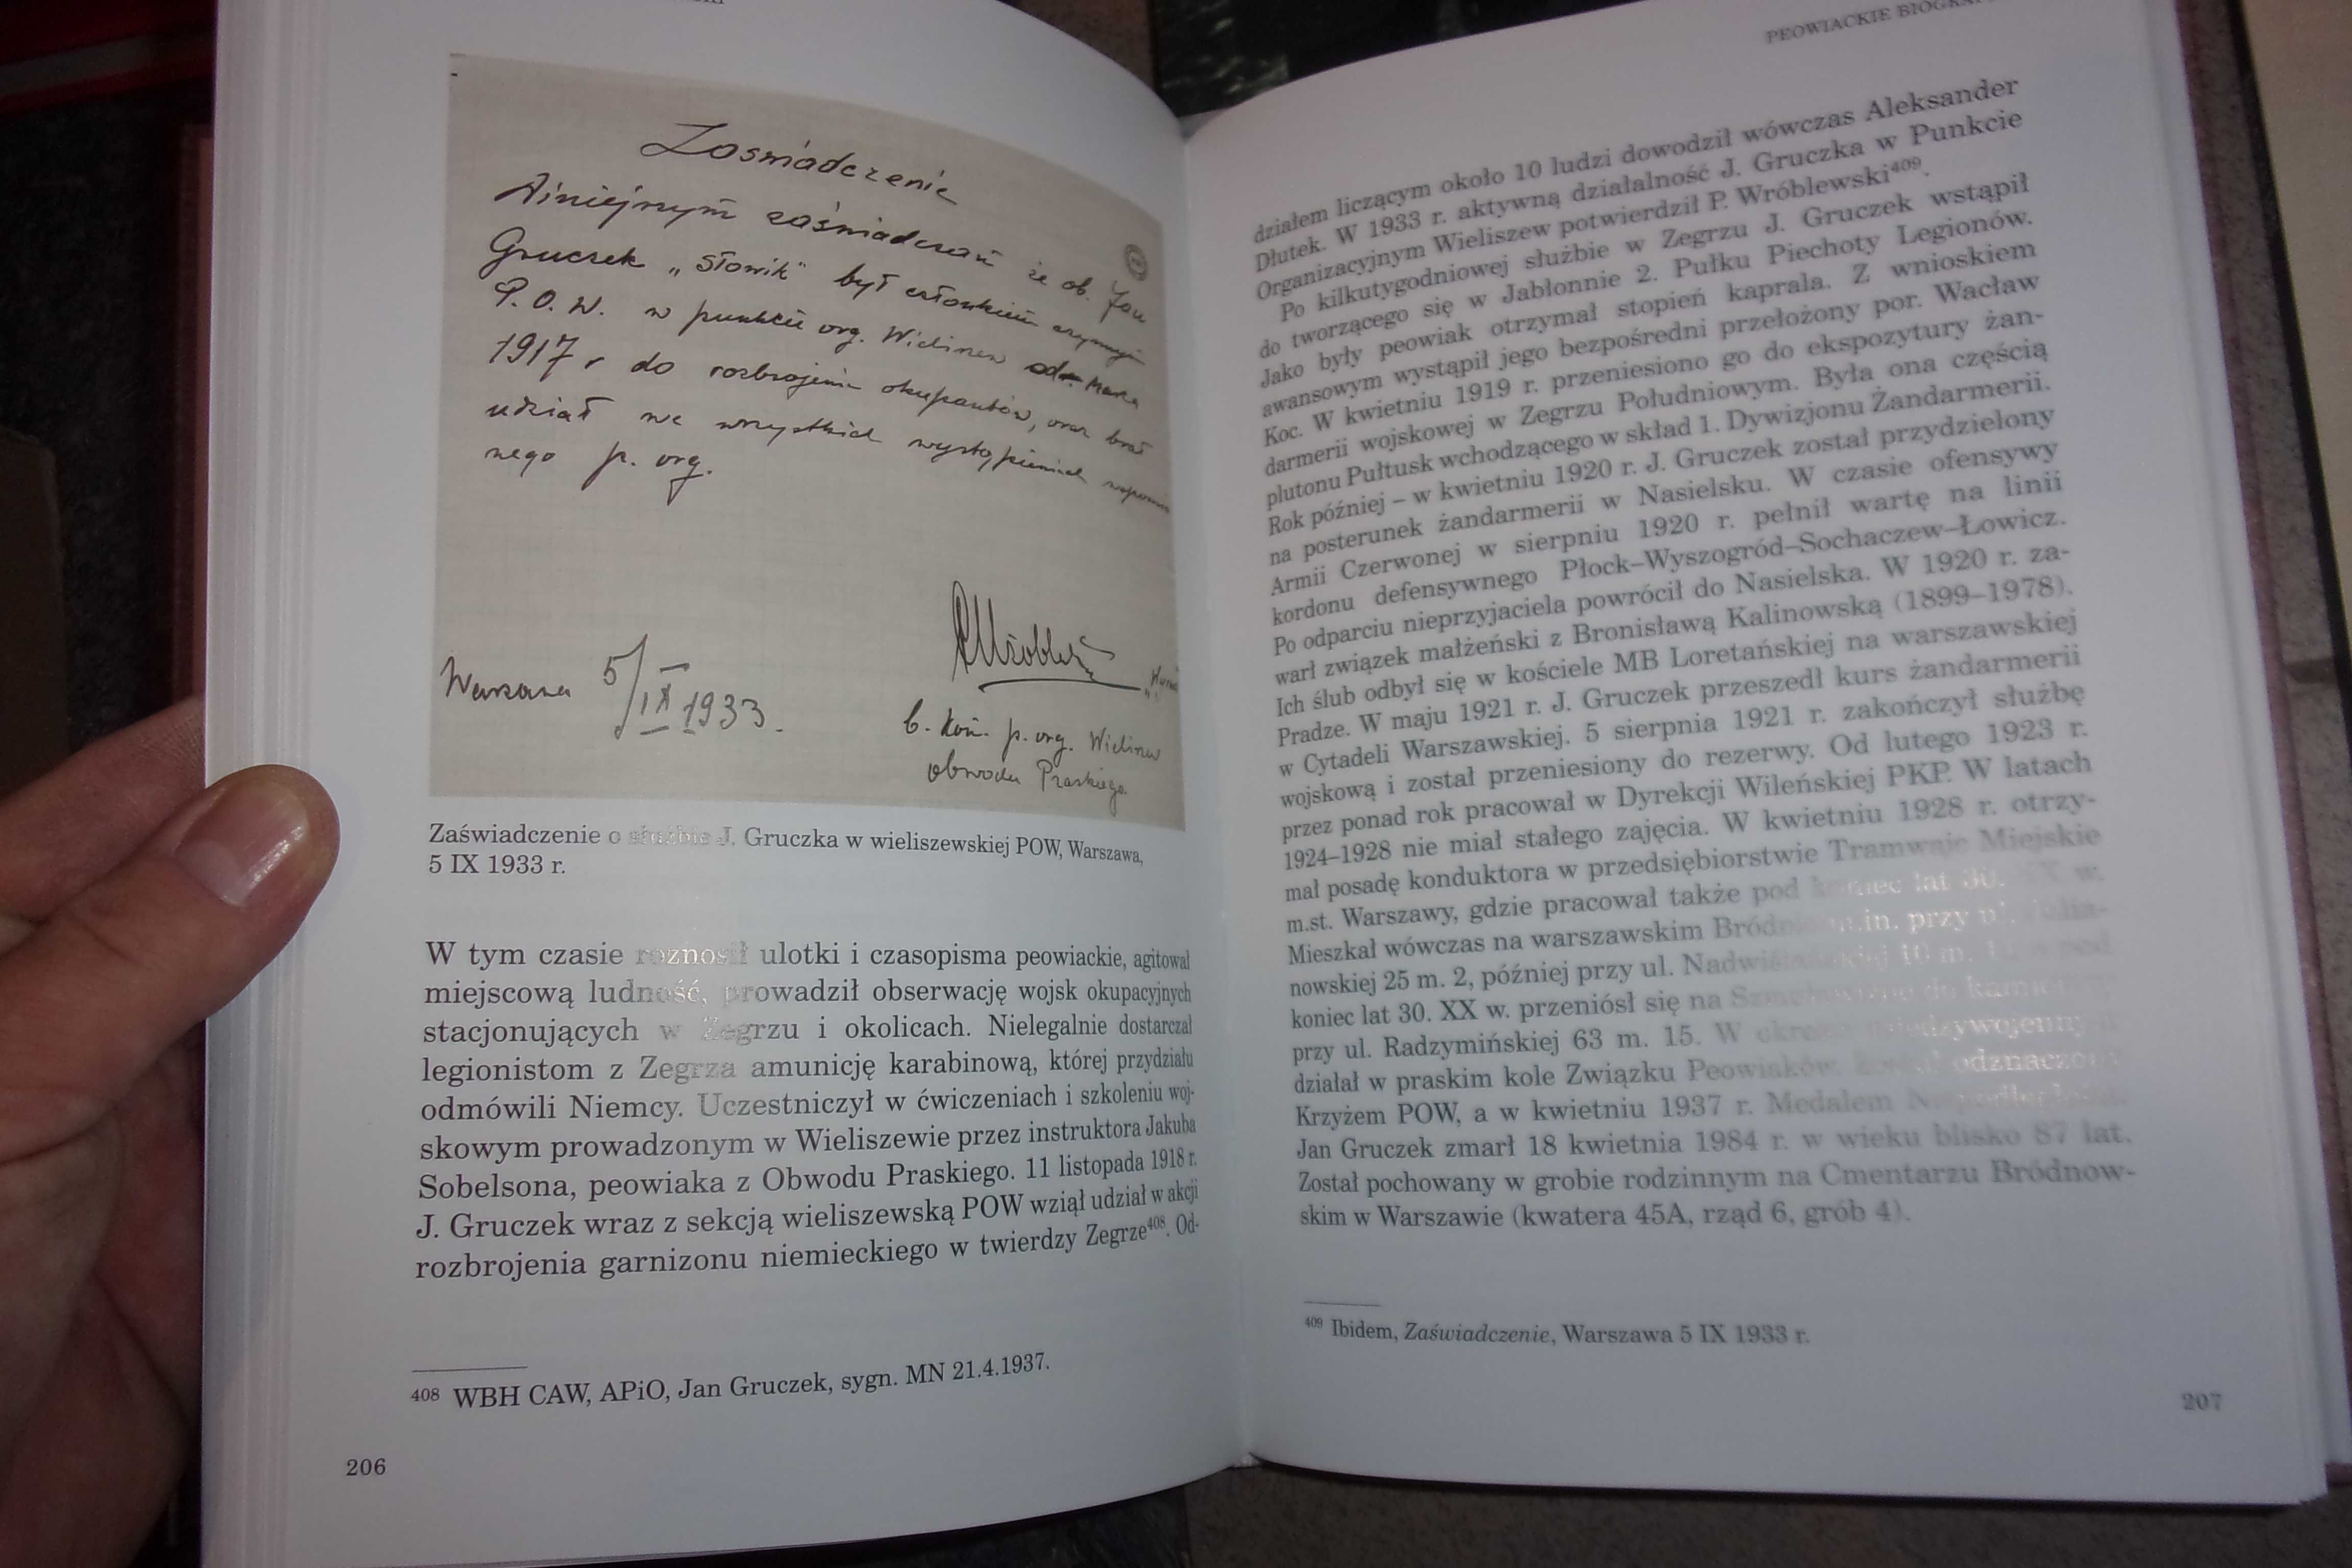 Zaświadczenie
Niniejszym zaświadczam że ob. Jan
Gruczek „Słowik" był członkiem czynnym
P.O.W. w punkcie org. Wieliszew od marca
1917 r do rozbrojenia okupantów, oraz brał
udział we wszystkich wystąpieniach
nego p. org.
Warszawa 5/IX 1933.
b. kom. p. org. Wieliszew
obwodu Praskiego.
Zaświadczenie o służbie J. Gruczka w wieliszewskiej POW, Warszawa,
5 IX 1933 r.
W tym czasie roznosił ulotki i czasopisma peowiackie, agitował
miejscową ludność, prowadził obserwację wojsk okupacyjnych
stacjonujących w Zegrzu i okolicach. Nielegalnie dostarczał
legionistom z Zegrza amunicję karabinową, której przydziału
odmówili Niemcy. Uczestniczył w ćwiczeniach i szkoleniu woj-
skowym prowadzonym w Wieliszewie przez instruktora Jakuba
Sobelsona, peowiaka z Obwodu Praskiego. 11 listopada 1918 r.
J. Gruczek wraz z sekcją wieliszewską POW wziął udział w akcji
rozbrojenia garnizonu niemieckiego w twierdzy Zegrze⁴⁰⁸. Od-
⁴⁰⁸ WBH CAW, APiO, Jan Gruczek, sygn. MN 21.4.1937.
206
PEOWIACKIE
działem liczącym około 10 ludzi dowodził wówczas Aleksander
Dłutek. W 1933 r. aktywną działalność J. Gruczka w Punkcie
Organizacyjnym Wieliszew potwierdził P. Wróblewski⁴⁰⁹.
Po kilkutygodniowej służbie w Zegrzu J. Gruczek wstąpił
do tworzącego się w Jabłonnie 2. Pułku Piechoty Legionów.
Jako były peowiak otrzymał stopień kaprala. Z wnioskiem
awansowym wystąpił jego bezpośredni przełożony por. Wacław
Koc. W kwietniu 1919 r. przeniesiono go do ekspozytury żan-
darmerii wojskowej w Zegrzu Południowym. Była ona częścią
plutonu Pułtusk wchodzącego w skład 1. Dywizjonu Żandarmerii.
Rok później – w kwietniu 1920 r. J. Gruczek został przydzielony
na posterunek żandarmerii w Nasielsku. W czasie ofensywy
Armii Czerwonej w sierpniu 1920 r. pełnił wartę na linii
kordonu defensywnego Płock–Wyszogród–Sochaczew–Łowicz.
Po odparciu nieprzyjaciela powrócił do Nasielska. W 1920 r. za-
warł związek małżeński z Bronisławą Kalinowską (1899–1978).
Ich ślub odbył się w kościele MB Loretańskiej na warszawskiej
Pradze. W maju 1921 r. J. Gruczek przeszedł kurs żandarmerii
w Cytadeli Warszawskiej. 5 sierpnia 1921 r. zakończył służbę
wojskową i został przeniesiony do rezerwy. Od lutego 1923 r.
przez ponad rok pracował w Dyrekcji Wileńskiej PKP. W latach
1924–1928 nie miał stałego zajęcia. W kwietniu 1928 r. otrzy-
mał posadę konduktora w przedsiębiorstwie Tramwaje Miejskie
m.st. Warszawy, gdzie pracował także pod koniec lat 30. XX w.
Mieszkał wówczas na warszawskim Bródnie m.in. przy ul.
nowskiej 25 m. 2, później przy ul. Nadwiślańskiej 10 m.
koniec lat 30. XX w. przeniósł się na
przy ul. Radzymińskiej 63 m. 15. W okresie międzywojennym
działał w praskim kole Związku Peowiaków. Został odznaczony
Krzyżem POW, a w kwietniu 1937 r. Medalem Niepodległości.
Jan Gruczek zmarł 18 kwietnia 1984 r. w wieku blisko 87 lat.
Został pochowany w grobie rodzinnym na Cmentarzu Bródnow-
skim w Warszawie (kwatera 45A, rząd 6, grób 4).
⁴⁰⁹ Ibidem, Zaświadczenie, Warszawa 5 IX 1933 r.
207